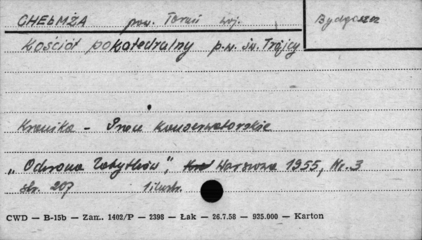 CHEŁMŻA pow. Toruń woj. Bydgoszcz
Kościół pokatedralny p.w. św. Trójcy
Kronika - Prace konserwatorskie
„Ochrona Zabytków", Warszawa 1955, Nr. 3
str. 207 1 ilustr.
CWD — B-15b — Zam. 1402/P — 2398 — Łak — 26.7.58 — 935.000 — Karton